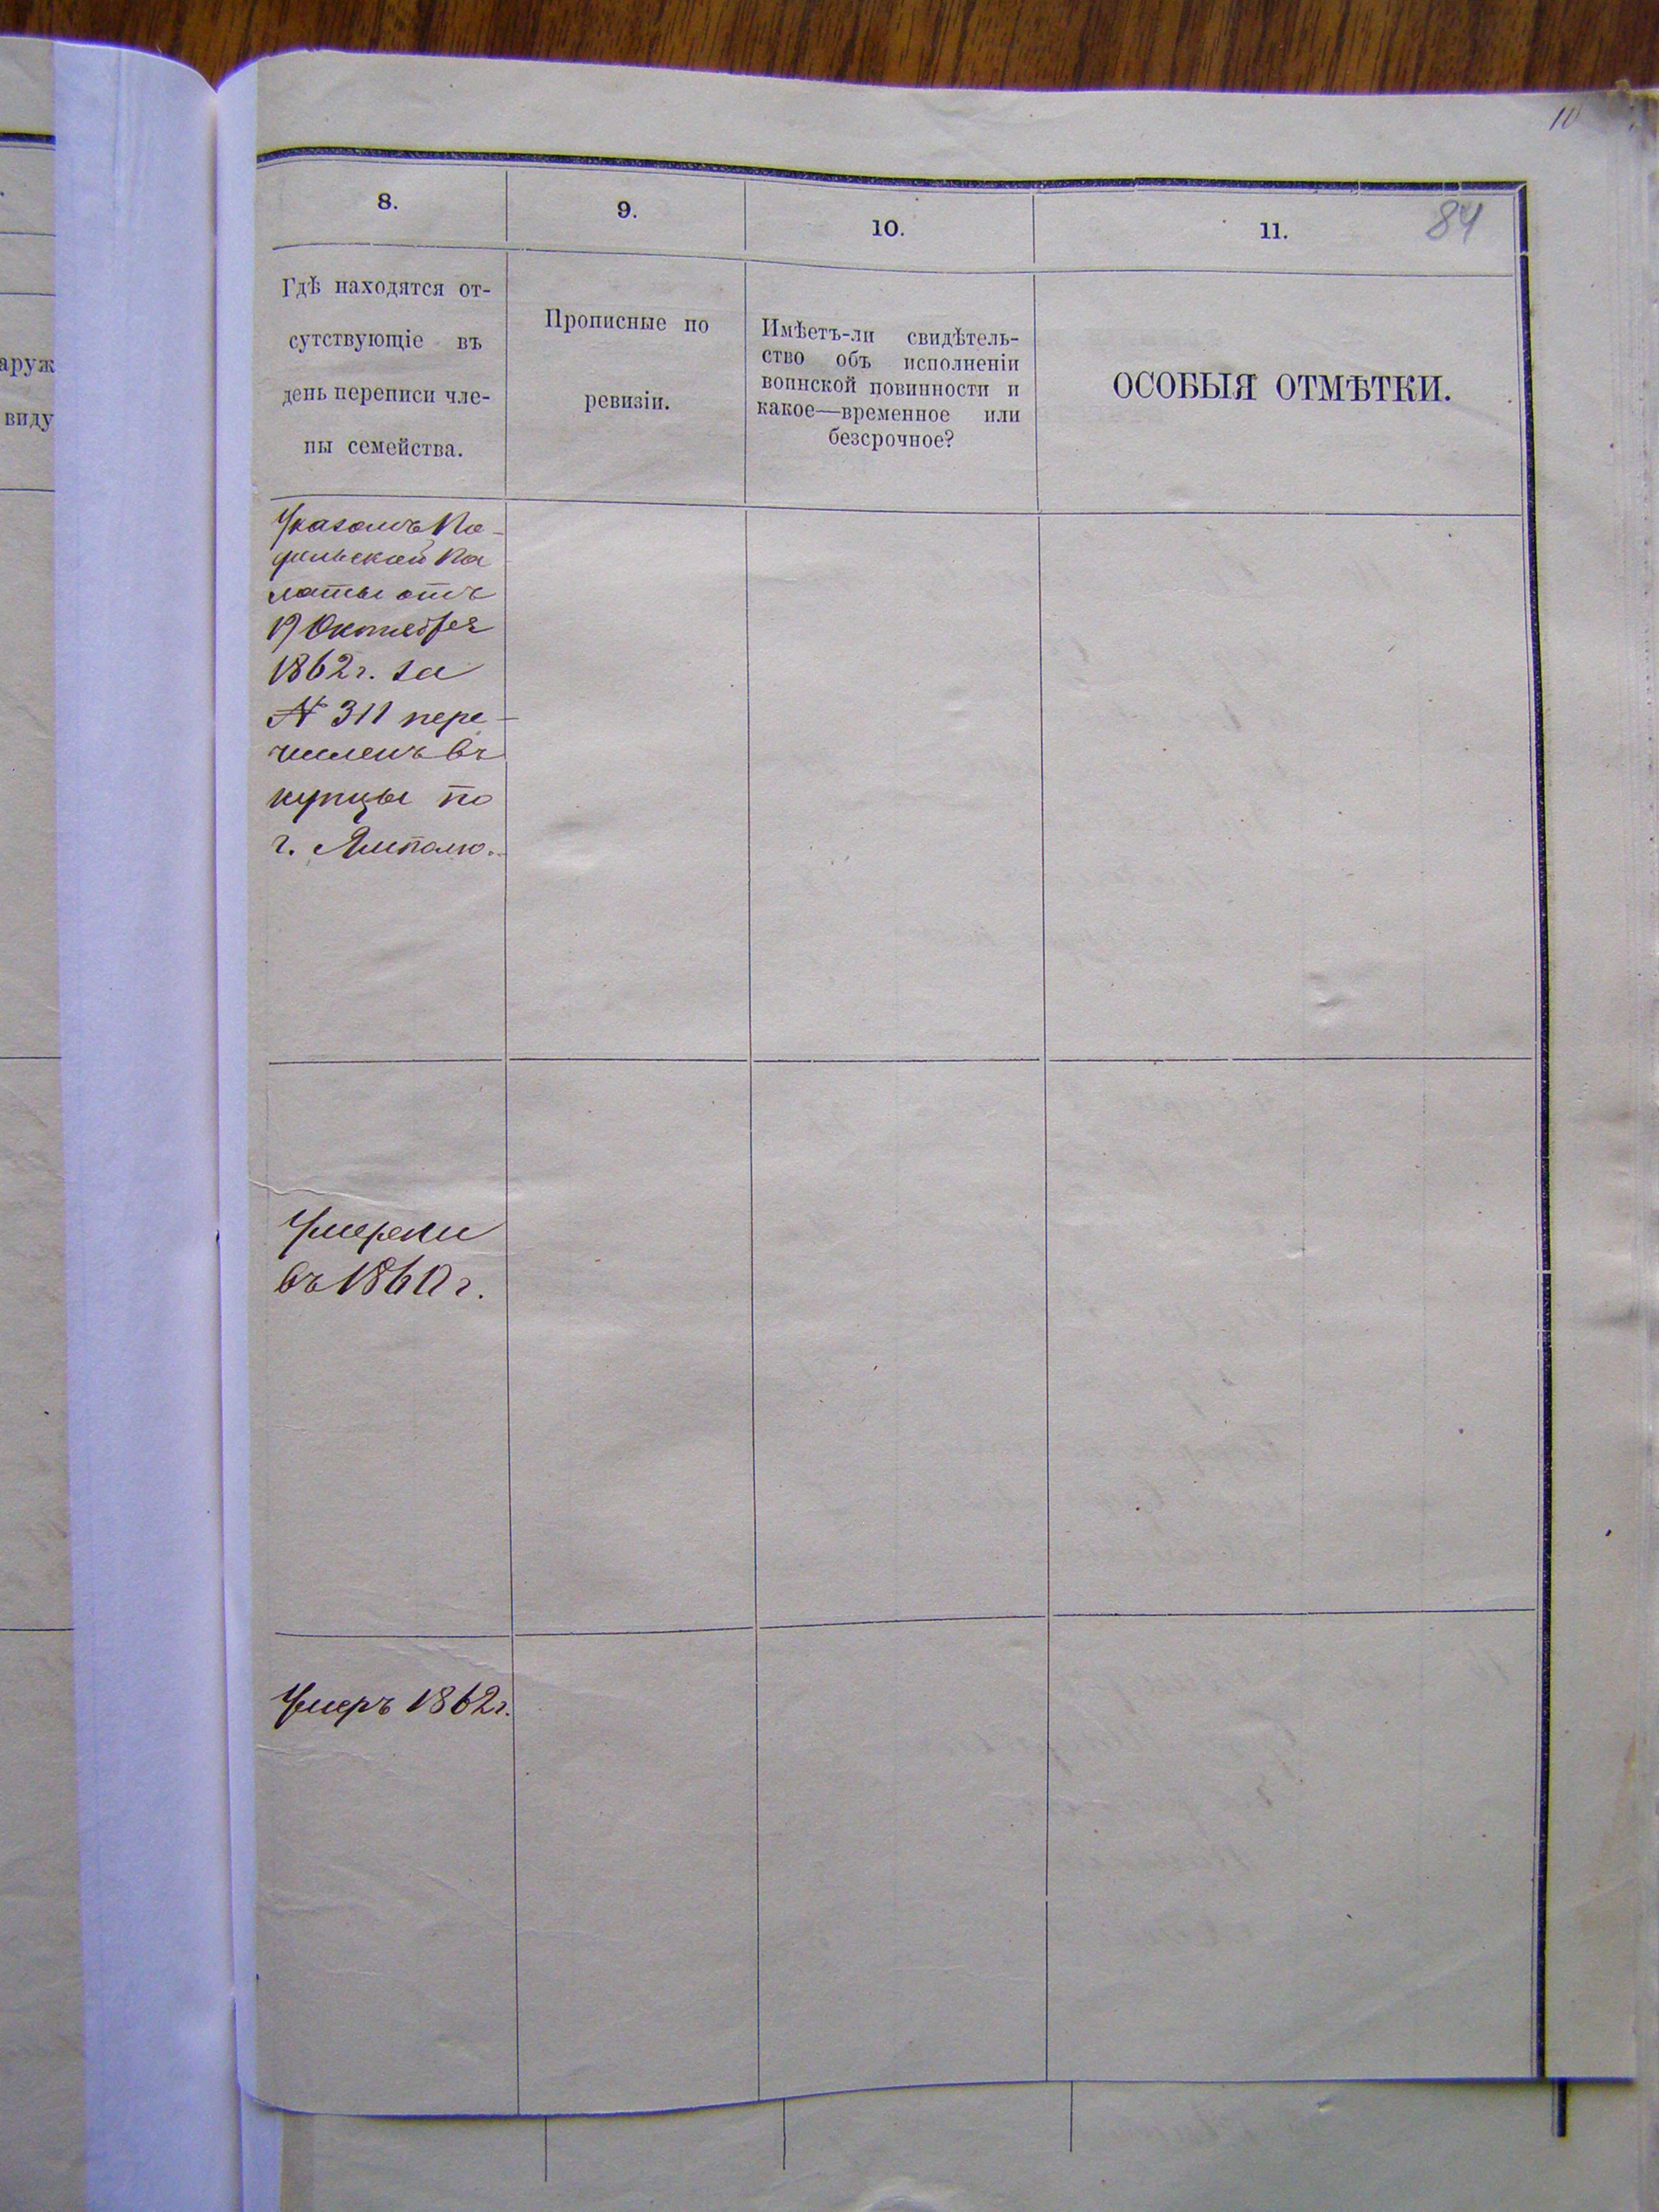 10
84
8.
9.
10.
11.
Гдѣ находятся от-
сутствующіе въ
день переписи чле-
ны семейства.
Прописные по
ревизіи.
Имѣетъ-ли свидѣтель-
ство объ исполненіи
воинской повинности и
какое—временное или
безсрочное?
ОСОБЫЯ ОТМѢТКИ.
аруж
виду
Указомъ По-
дольской Па
латы отъ
19 Октября
1862 г. за
№ 311 пере-
численъ въ
купцы по
г. Ямполю.
Умерли
въ 1860 г.
Умеръ 1862 г.